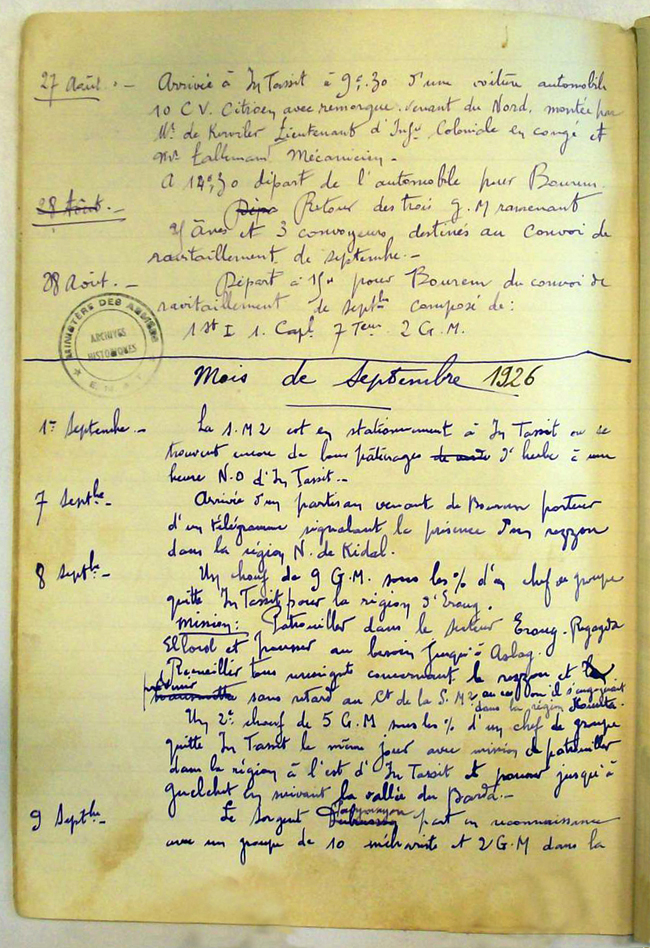 27 Août. - Arrivée à In Tassit à 9h,30 d'une voiture automobile
10 C.V. Citroen avec remorque venant du Nord, montée par
Mr de Kerviler Lieutenant d'Infie Coloniale en congé et
Mr Lallemand Mécanicien -
A 14h,30 départ de l'automobile pour Bourem.
28 Août. - Retour des trois G.M ramenant
ânes et 3 convoyeurs, destinés au Convoi de
ravitaillement de septembre. -
28 Août. - Départ à 15H pour Bourem du convoi de
ravitaillement de septbre composé de:
1 st I 1. Capl 7 Teurs 2 G.M.
MINISTERE DES ARMEES
ARCHIVES
HISTORIQUES
Mois de Septembre 1926
1er Septembre - La S.M2 est en stationnement à In Tassit où se
trouvent encore de bons pâturages d'herbe à une
heure N.O d'In Tassit. -
7 Septbre - Arrivée d'un partisan venant de Bourem porteur
d'un télégramme signalant la présence d'un rezzou
dans la région N. de Kidal.
8 septbre - Un chouf de 9 G.M. sous les % d'un chef de groupe
quitte In Tassit pour la région d'Eroug.
Mission: Patrouiller dans le secteur Eroug.
et pousser au besoin jusqu'à Aslag.
Recueillir tous renseignts concernant le rezzou et
prévenir sans retard au Ct de la S.M2 au cas où il s'engagerait
dans la région
Un 2e chouf de 5 G.M sous les % d'un chef de groupe
quitte In Tassit le même jour avec mission de patrouiller
dans la région à l'est d'In Tassit et pousser jusqu'à
Guelchet en suivant la vallée du
9 Septbre - Le Sergent part en reconnaissance
avec un groupe de 10 méharistes et 2 G.M dans la